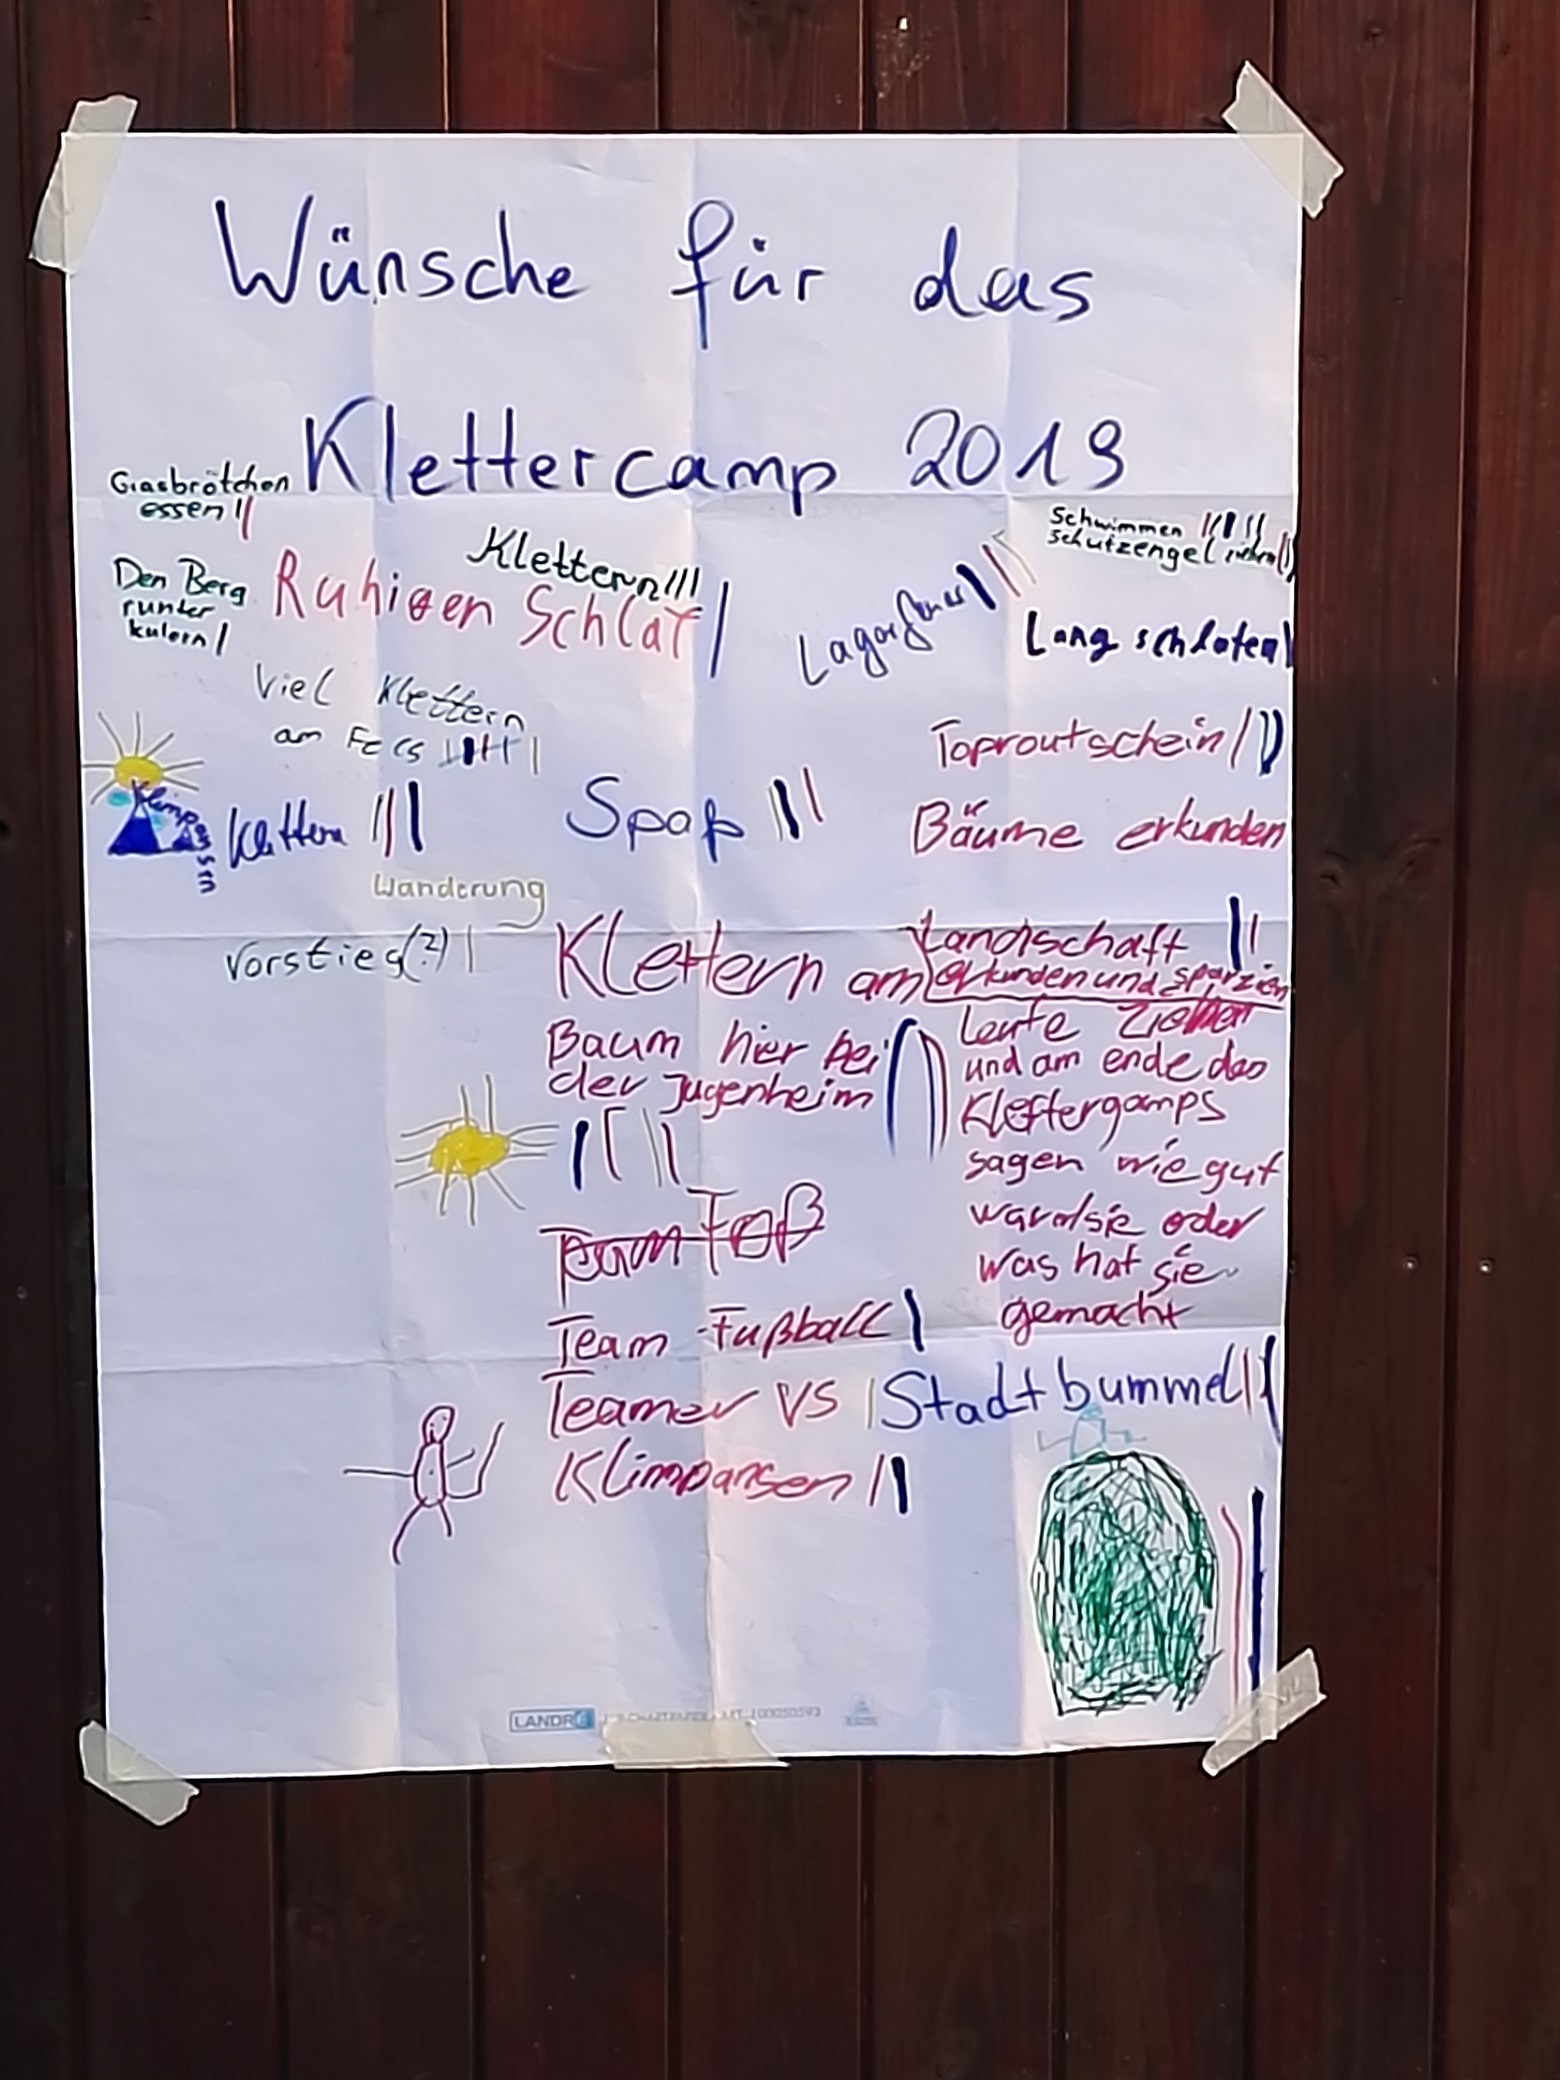 Wünsche für das
Klettercamp 2019
Grasbrötchen
essen
Den Berg
runter
kulern
Klettern
Ruhigen Schlaf
Lagerfeuer
Schwimmen
Schutzengel
Lang schlafen
Viel Klettern
am Fels
Toproutschein
Klettern
Spaß
Bäume erkunden
Wanderung
Vorstieg(?)
Klettern am
Baum hier bei
der Jugenheim
Landschaft
erkunden und
Leute ziehen
und am ende des
Klettergamps
sagen wie gut
war d/sie oder
was hat sie
gemacht
Team
Team Fußball
Teamer VS
Klimpansen
Stadtbummel
LANDRÉ